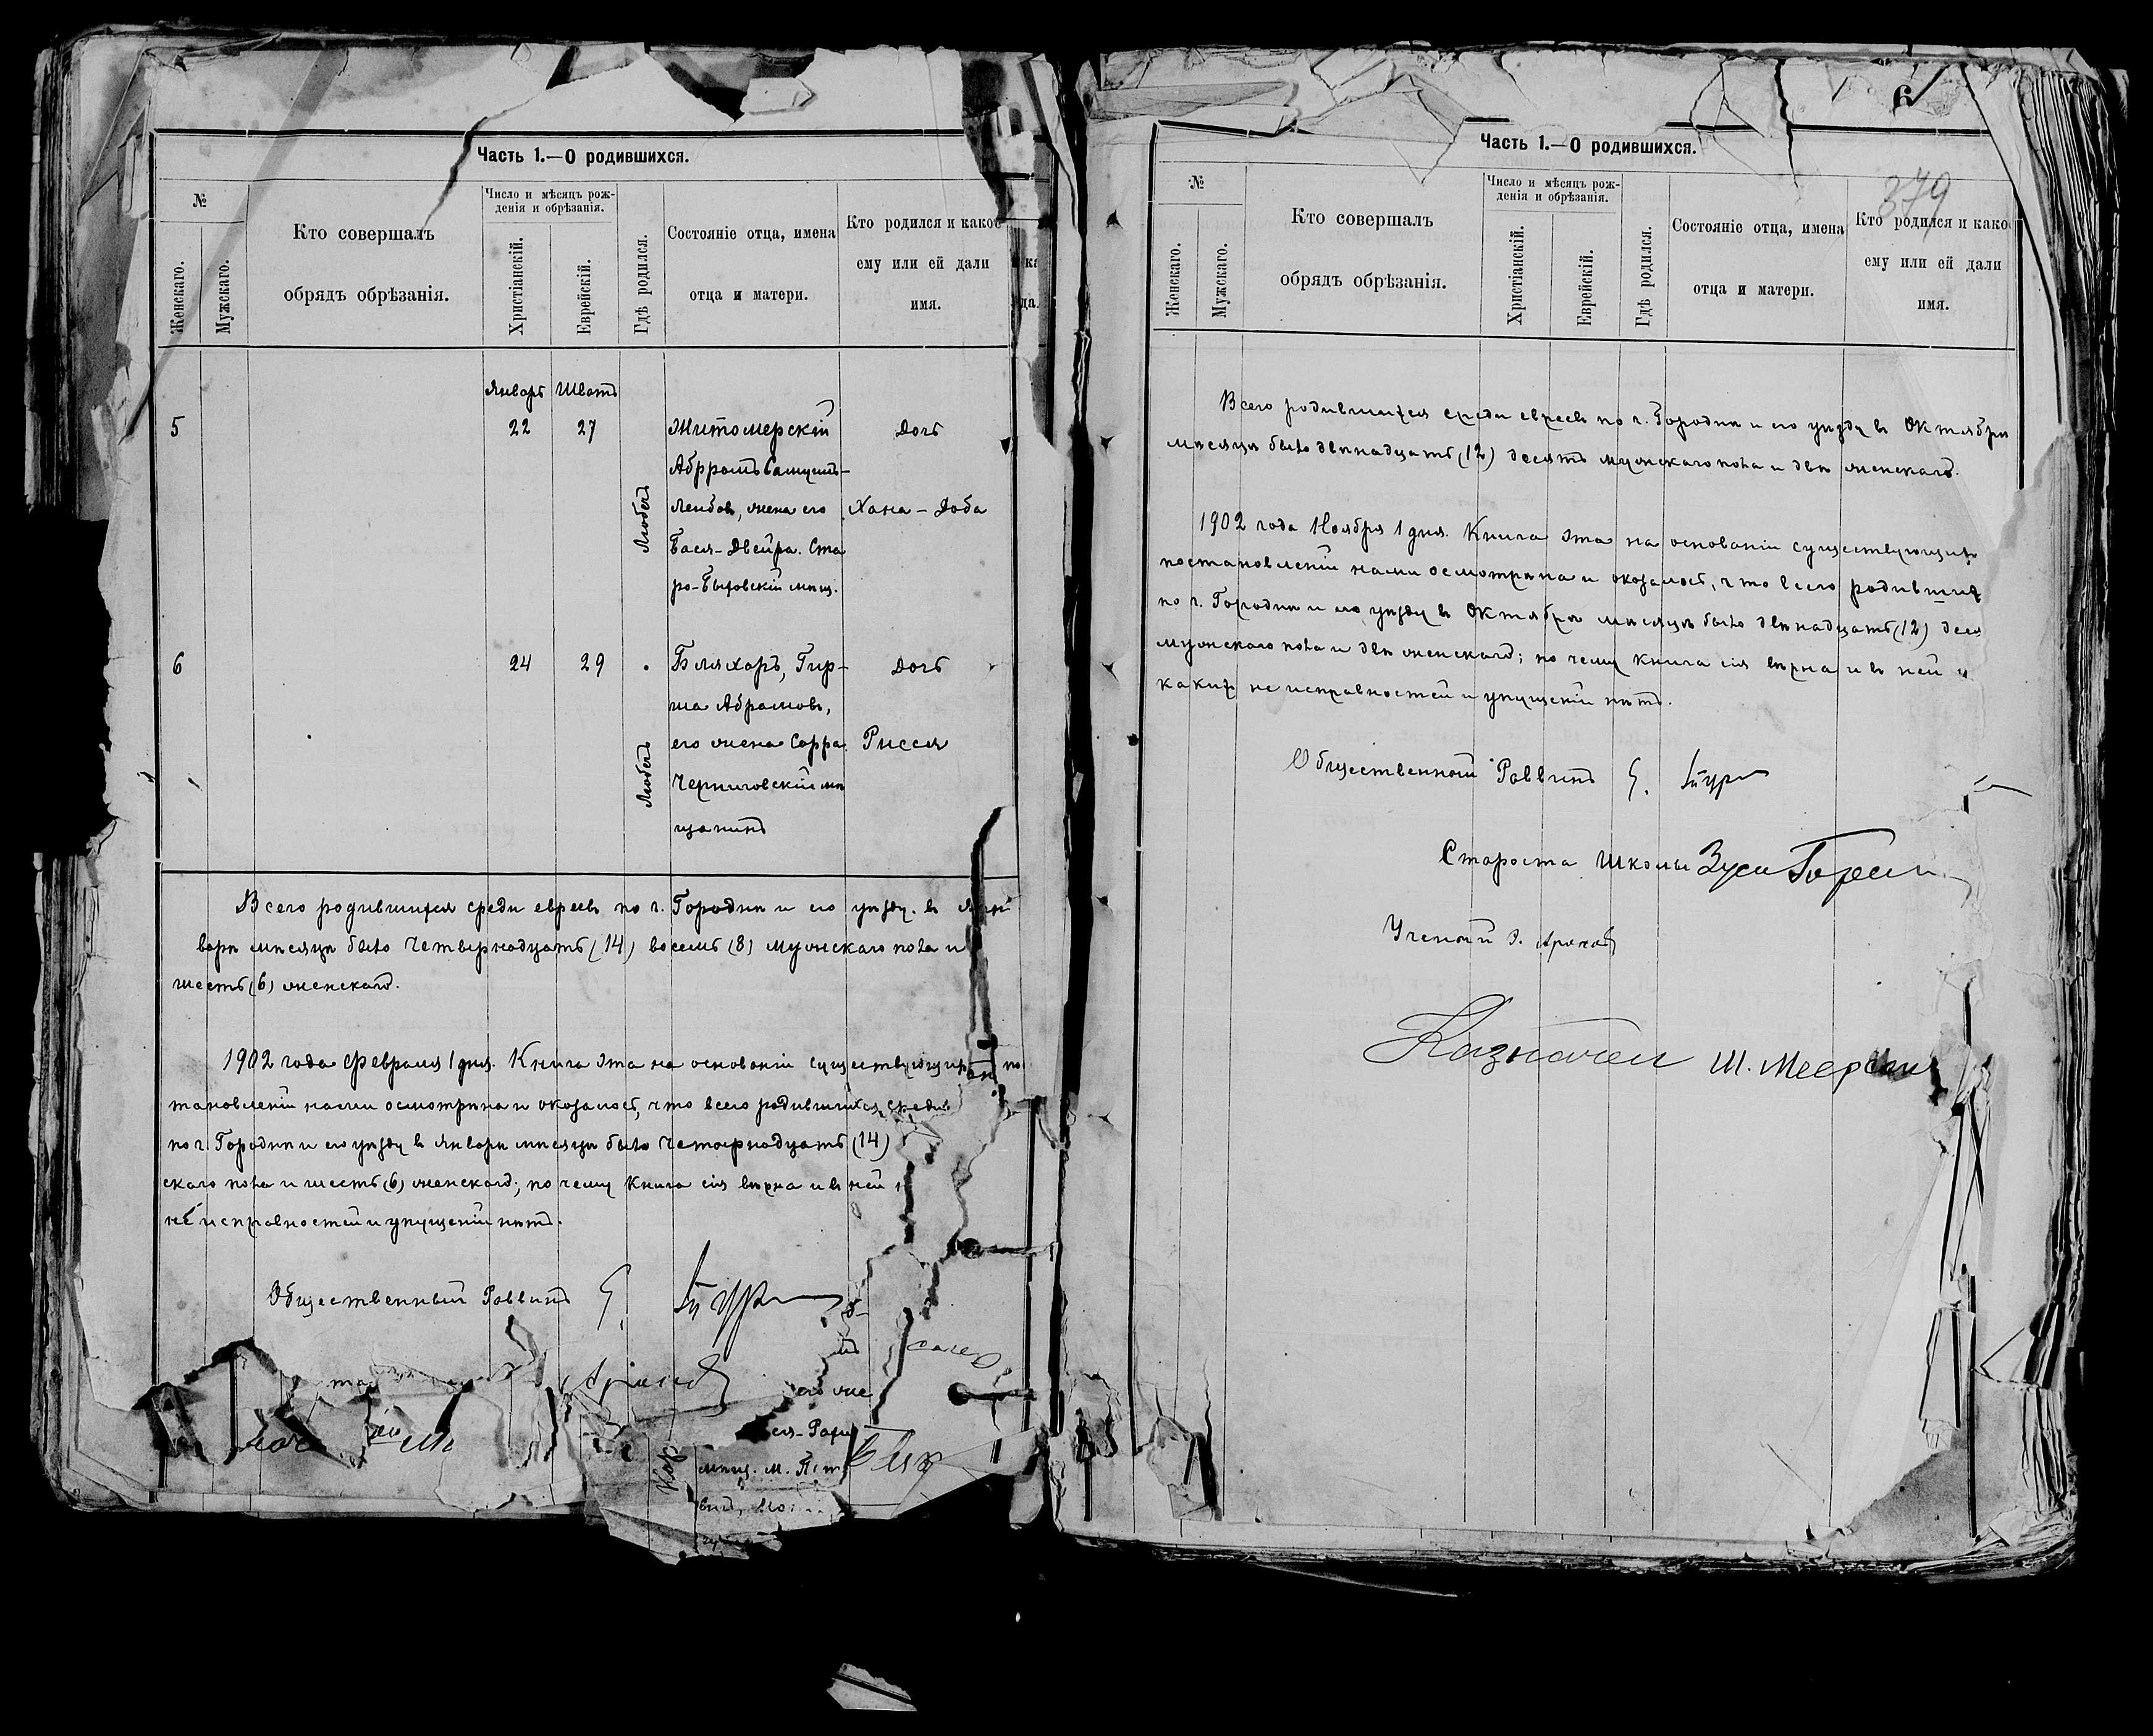 Часть 1.—О родившихся.
№
Женскаго.
Мужскаго.
Кто совершалъ
обрядъ обрѣзанія.
Число и мѣсяцъ рож-
денія и обрѣзанія.
Христіанскій.
Еврейскій.
Гдѣ родился.
Состояніе отца, имена
отца и матери.
Кто родился и какое
ему или ей дали
имя.
Январь Шватъ
5 22 27 Житомерскій Дочь
Абррамъ Самуилъ-
Лейбовъ, жена его Хана-Доба
Любечъ
Бася-Двейра. Ста
ро-Быховскій мѣщ.
6 24 29 Бляхоръ, Гир- Дочь
ша Абрамовъ,
его жена Сорра Рисся
Любечъ
Черниговскій мѣ
щанинъ
Всего родившихся среди евреевъ по г. Городнѣ и его уѣзду въ Ян
варѣ мѣсяцѣ было четырнадцать (14) восемь (8) мужскаго пола и
шесть (6) женскаго.
1902 года Февраля 1 дня. Книга эта на основаніи существующихъ по
тановленій нами осмотрѣна и оказалось, что всего родившихся среди
по г. Городнѣ и его уѣзду въ Январѣ мѣсяцѣ было четырнадцать (14)
скаго пола и шесть (6) женскаго; по чему книга сія вѣрна и въ ней
неисправностей и упущеній нѣтъ.
Общественный Раввинъ
его же
мѣщ. м.
6
379
Часть 1.—О родившихся.
№
Женскаго.
Мужскаго.
Кто совершалъ
обрядъ обрѣзанія.
Число и мѣсяцъ рож-
денія и обрѣзанія.
Христіанскій.
Еврейскій.
Гдѣ родился.
Состояніе отца, имена
отца и матери.
Кто родился и како
ему или ей дали
имя.
Всего родившихся среди евреевъ по г. Городнѣ и его уѣзду въ Октябрѣ
мѣсяцѣ было двѣнадцать (12) десять мужскаго пола и двѣ женскаго.
1902 года Ноября 1 дня. Книга эта на основаніи существующихъ
постановленій нами осмотрѣна и оказалось, что всего родивших
по г. Городнѣ и его уѣзду въ Октябрѣ мѣсяцѣ было двѣнадцать (12) деся
мужскаго пола и двѣ женскаго; по чему книга сія вѣрна и въ ней ни
какихъ неисправностей и упущеній нѣтъ.
Общественный Раввинъ
Староста Школы Зуси
Ученый
Казначей Ш.